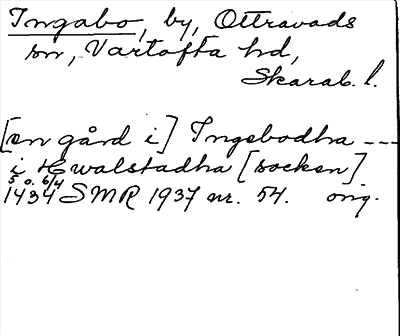 Ingabo, by, Ottravads
sn, Vartofta hd,
Skarab. l.
[en gård i] Ingebodha ---
i Hwalstadha [socken]
5 o. 6/4
1434 SMR 1937 nr. 54. orig.